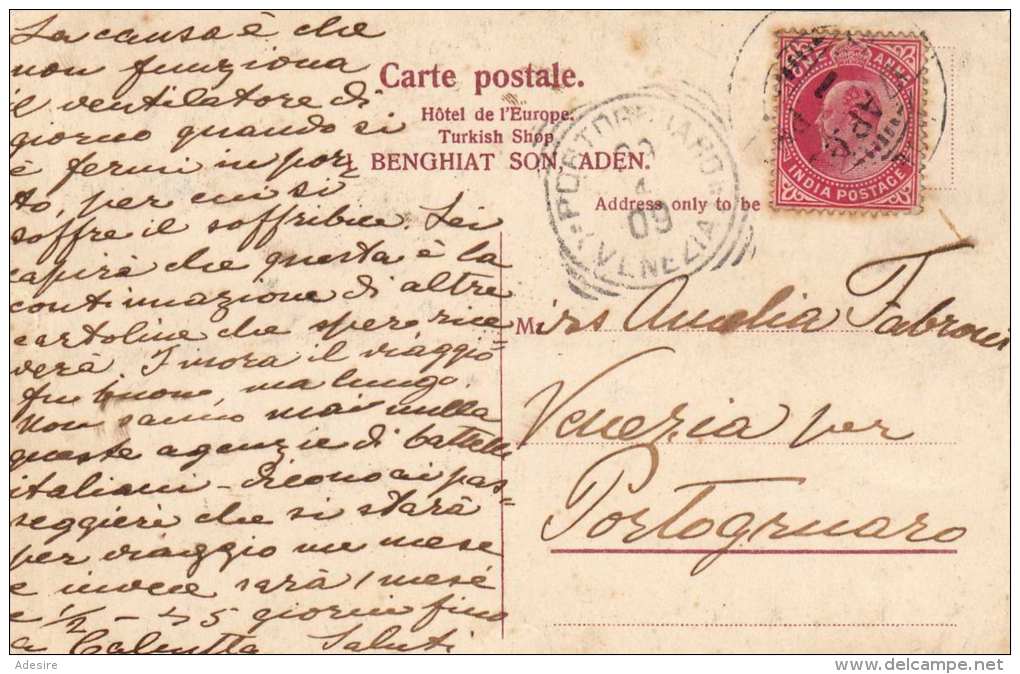 La causa è che
non funziona
il ventilatore di
giorno quando si
è fermi in por
to, per cui si
soffre il soffribile. Lei
capirà che questa è la
continuazione di altre
cartoline che spero rice
verà. Finora il viaggio
fu buono, ma lungo.
Non sanno mai nulla
queste agenzie di battelli
italiani - dicono ai pas=
seggieri che si starà
per viaggio un mese
e invece sarà 1 mese
e 1/2 - 45 giorni fino
a Calcutta Saluti
Carte postale.
Hôtel de l'Europe.
Turkish Shop
I. BENGHIAT SON, ADEN.
Address only to be
PORTOGRUARO
VENEZIA
09
INDIA POSTAGE
ANNA
AP
Mrs Amelia Fabroni
Venezia per
Portogruaro
Adesire
delcampe.net